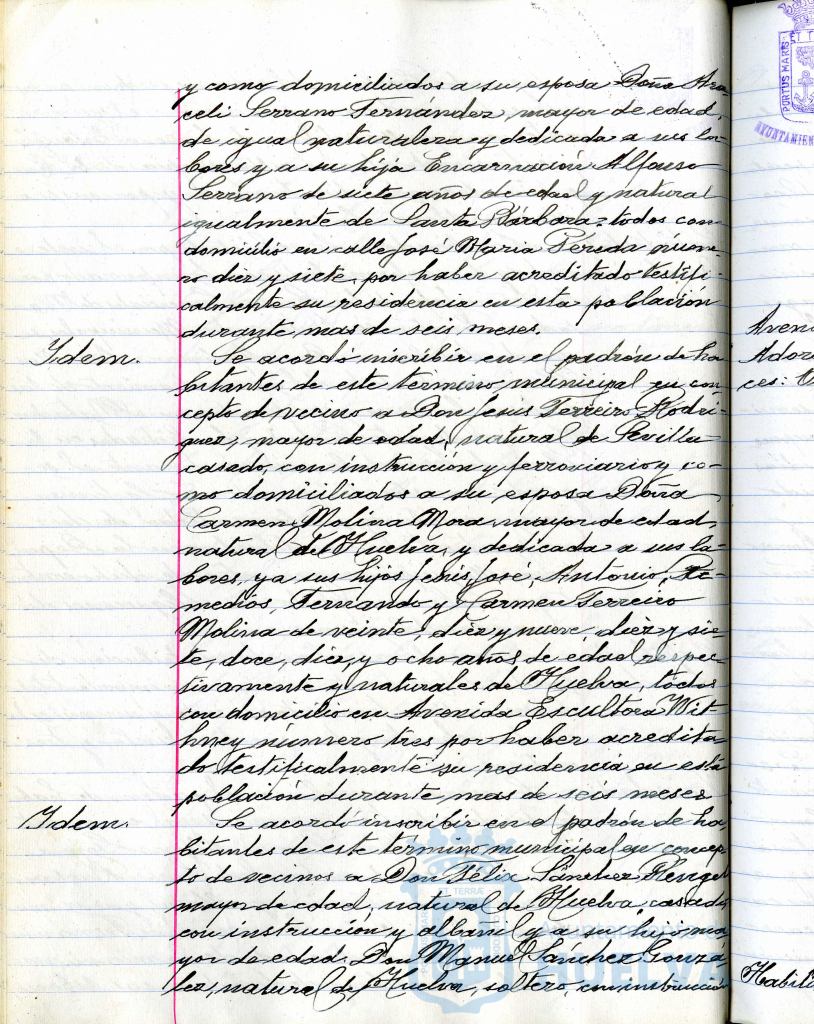 y como domiciliados a su esposa Doña Ara-
celi Serrano Fernández, mayor de edad,
de igual naturaleza y dedicada a sus la-
bores y a su hija Encarnación Alfonso
Serrano de siete años de edad y natural
igualmente de Santa Bárbara = todos con
domicilio en calle José Maria Pereda núme-
ro diez y siete, por haber acreditado testifi-
calmente su residencia en esta población
durante mas de seis meses.
Idem.
Se acordó inscribir en el padrón de ha-
bitantes de este término municipal en con-
cepto de vecino a Don Jesús Ferreiro Rodri-
guez, mayor de edad, natural de Sevilla
casado, con instrucción y ferroviario y co-
mo domiciliados a su esposa Doña
Carmen Molina Mora, mayor de edad,
natural de Huelva, y dedicada a sus la-
bores, y a sus hijos Jesús, José, Antonio, Re-
medios, Fernando y Carmen Ferreiro
Molina de veinte, diez y nueve, diez y sie-
te, doce, diez, y ocho años de edad respec-
tivamente y naturales de Huelva, todos
con domicilio en Avenida Escultora Wit-
hney número tres por haber acredita-
do testificalmente su residencia en esta
población durante mas de seis meses
Idem.
Se acordó inscribir en el padrón de ha-
bitantes de este término municipal en concep-
to de vecinos a Don Félix Sánchez
mayor de edad, natural de Huelva, casado
con instrucción y albañil y a su hijo ma-
yor de edad Don Manuel Sánchez Gonzá-
lez, natural de Huelva, soltero, con instrucción
PORTUS MARIS ET T
AYUNTAMIEN
Aven
Ador
ces:
Habili
ET TERRÆ
HUELVA